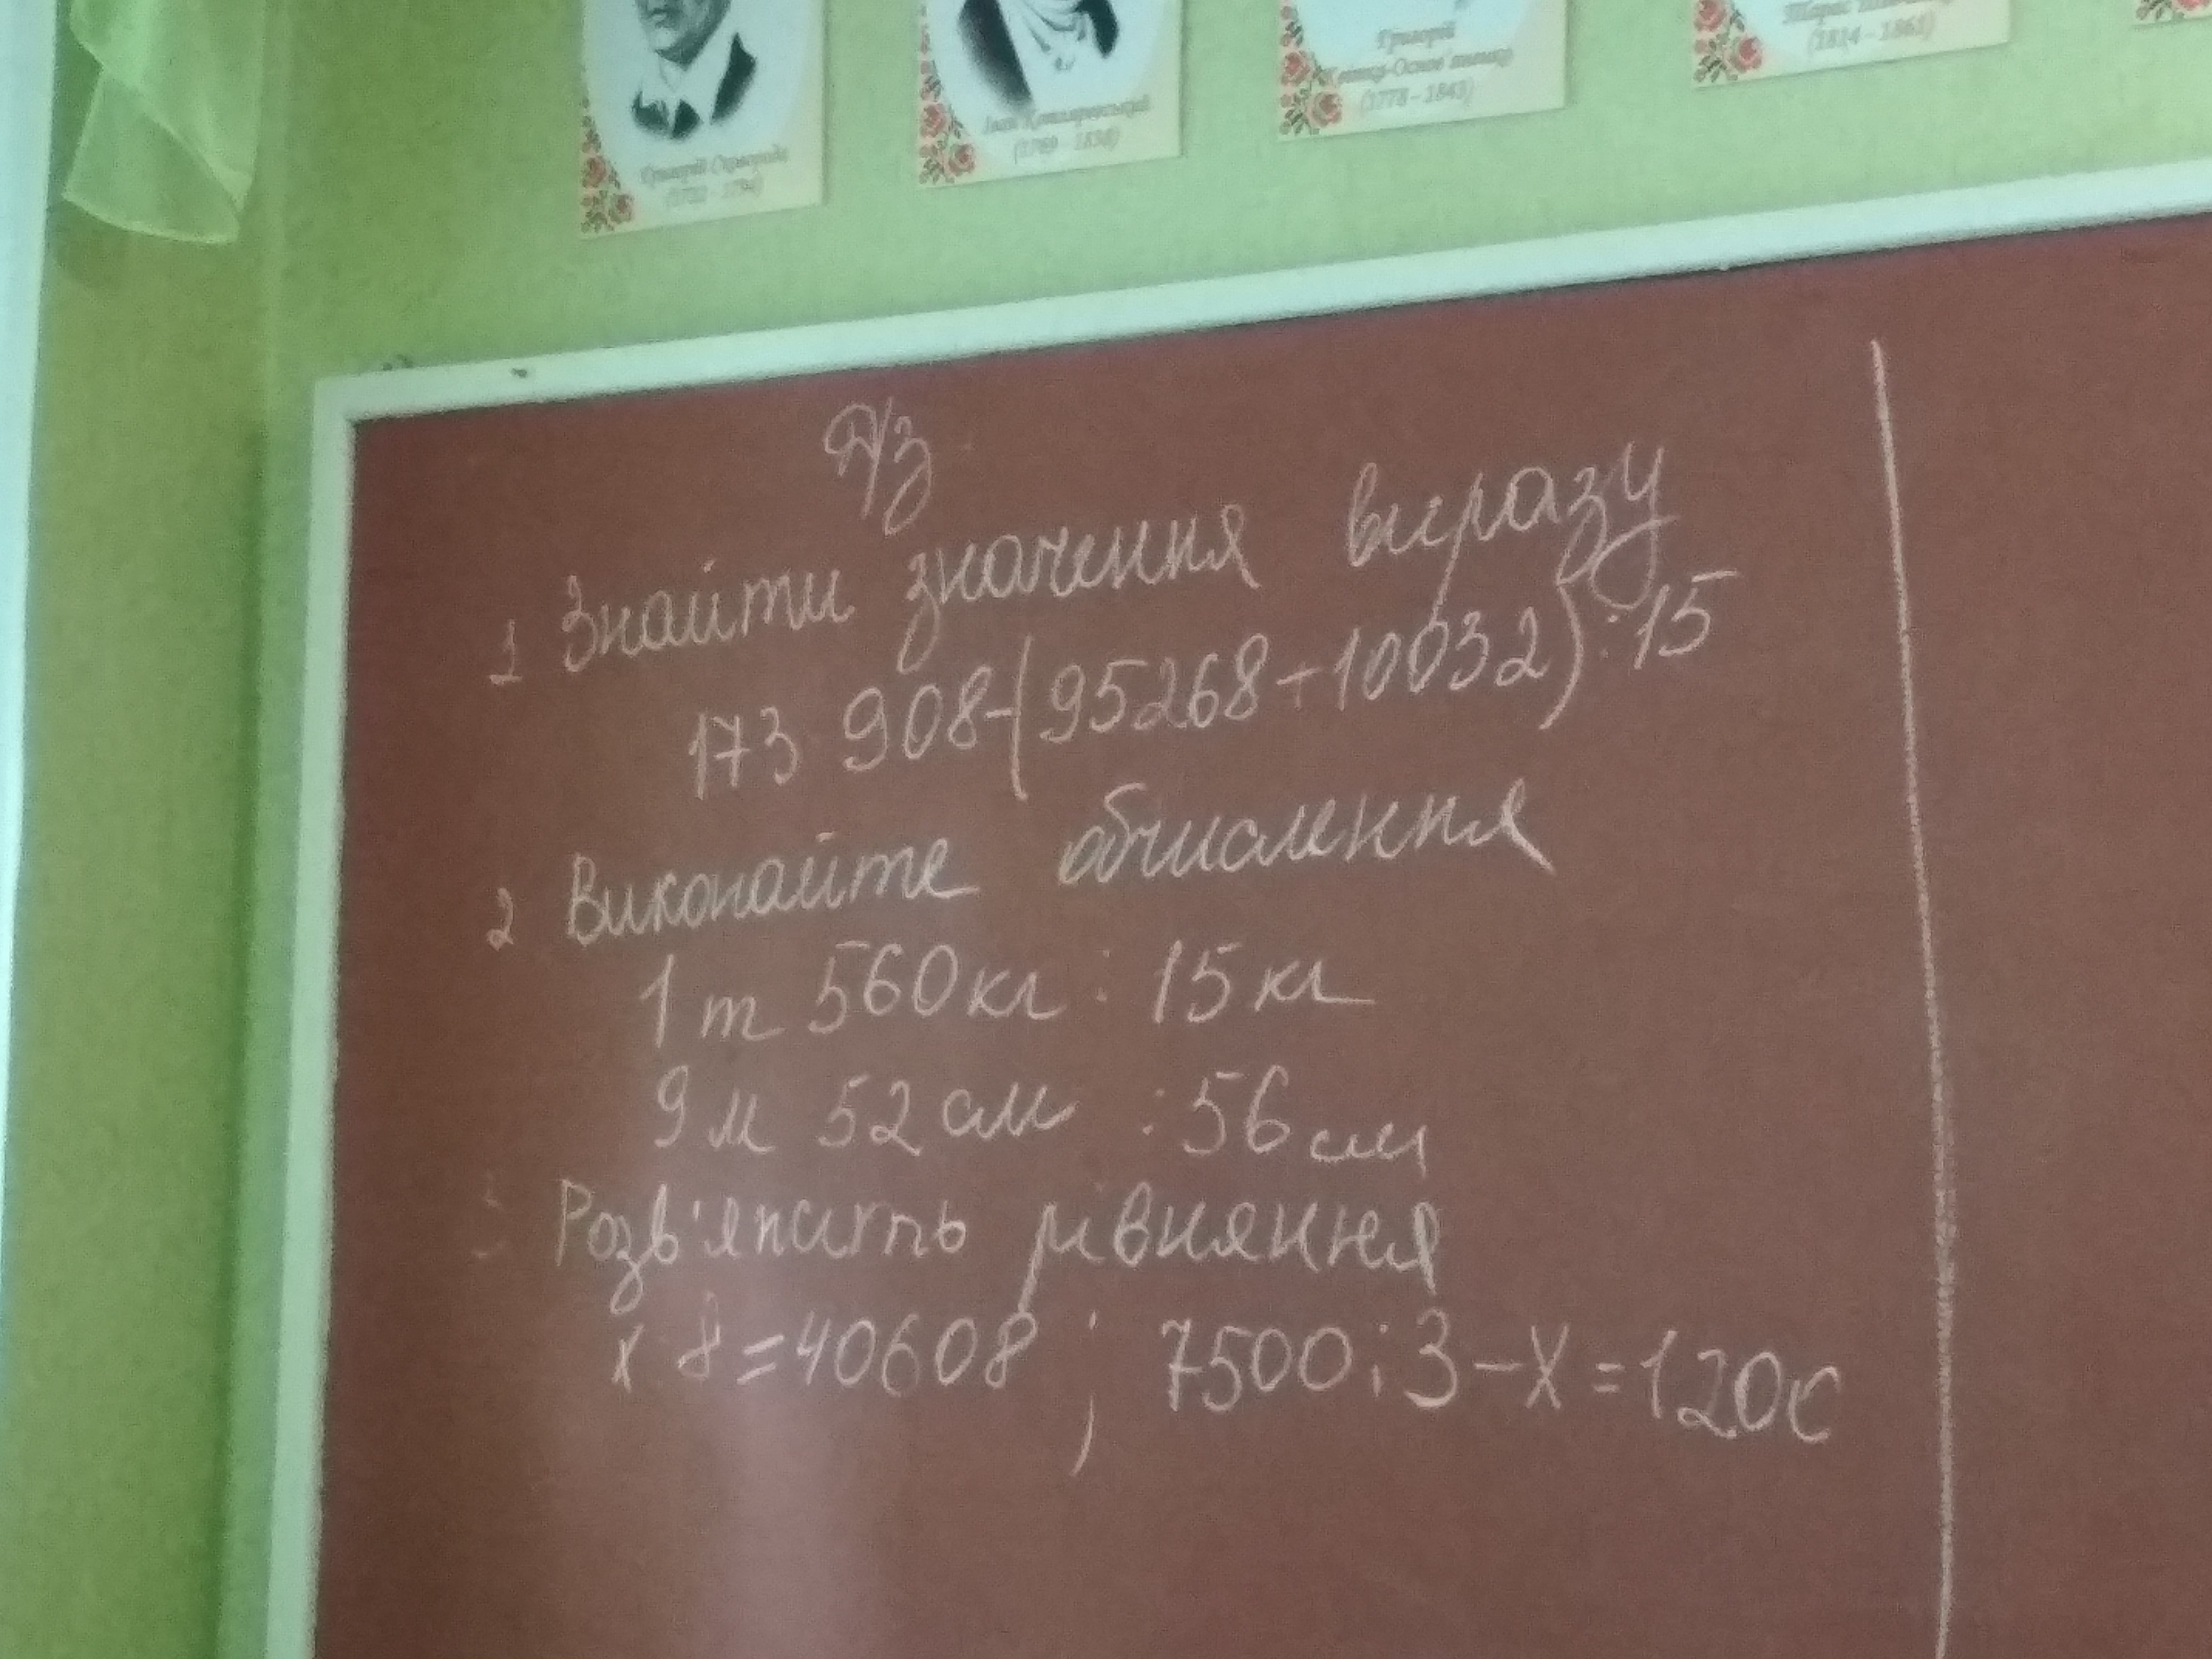 Григорій Сковорода
(1722 - 1794)
Іван Котляревський
(1769 - 1838)
Григорій
Квітка-Основ'яненко
(1778 - 1843)
Тарас
(1814 - 1861)
Д/з
1 Знайти значення виразу
173 908-(95268+10032):15
2 Виконайте обчислення
1 т 560кг : 15 кг
9 м 52 см : 56 см
Розв'яжіть рівняння
x 8=40608 ; 7500:3-X=1200